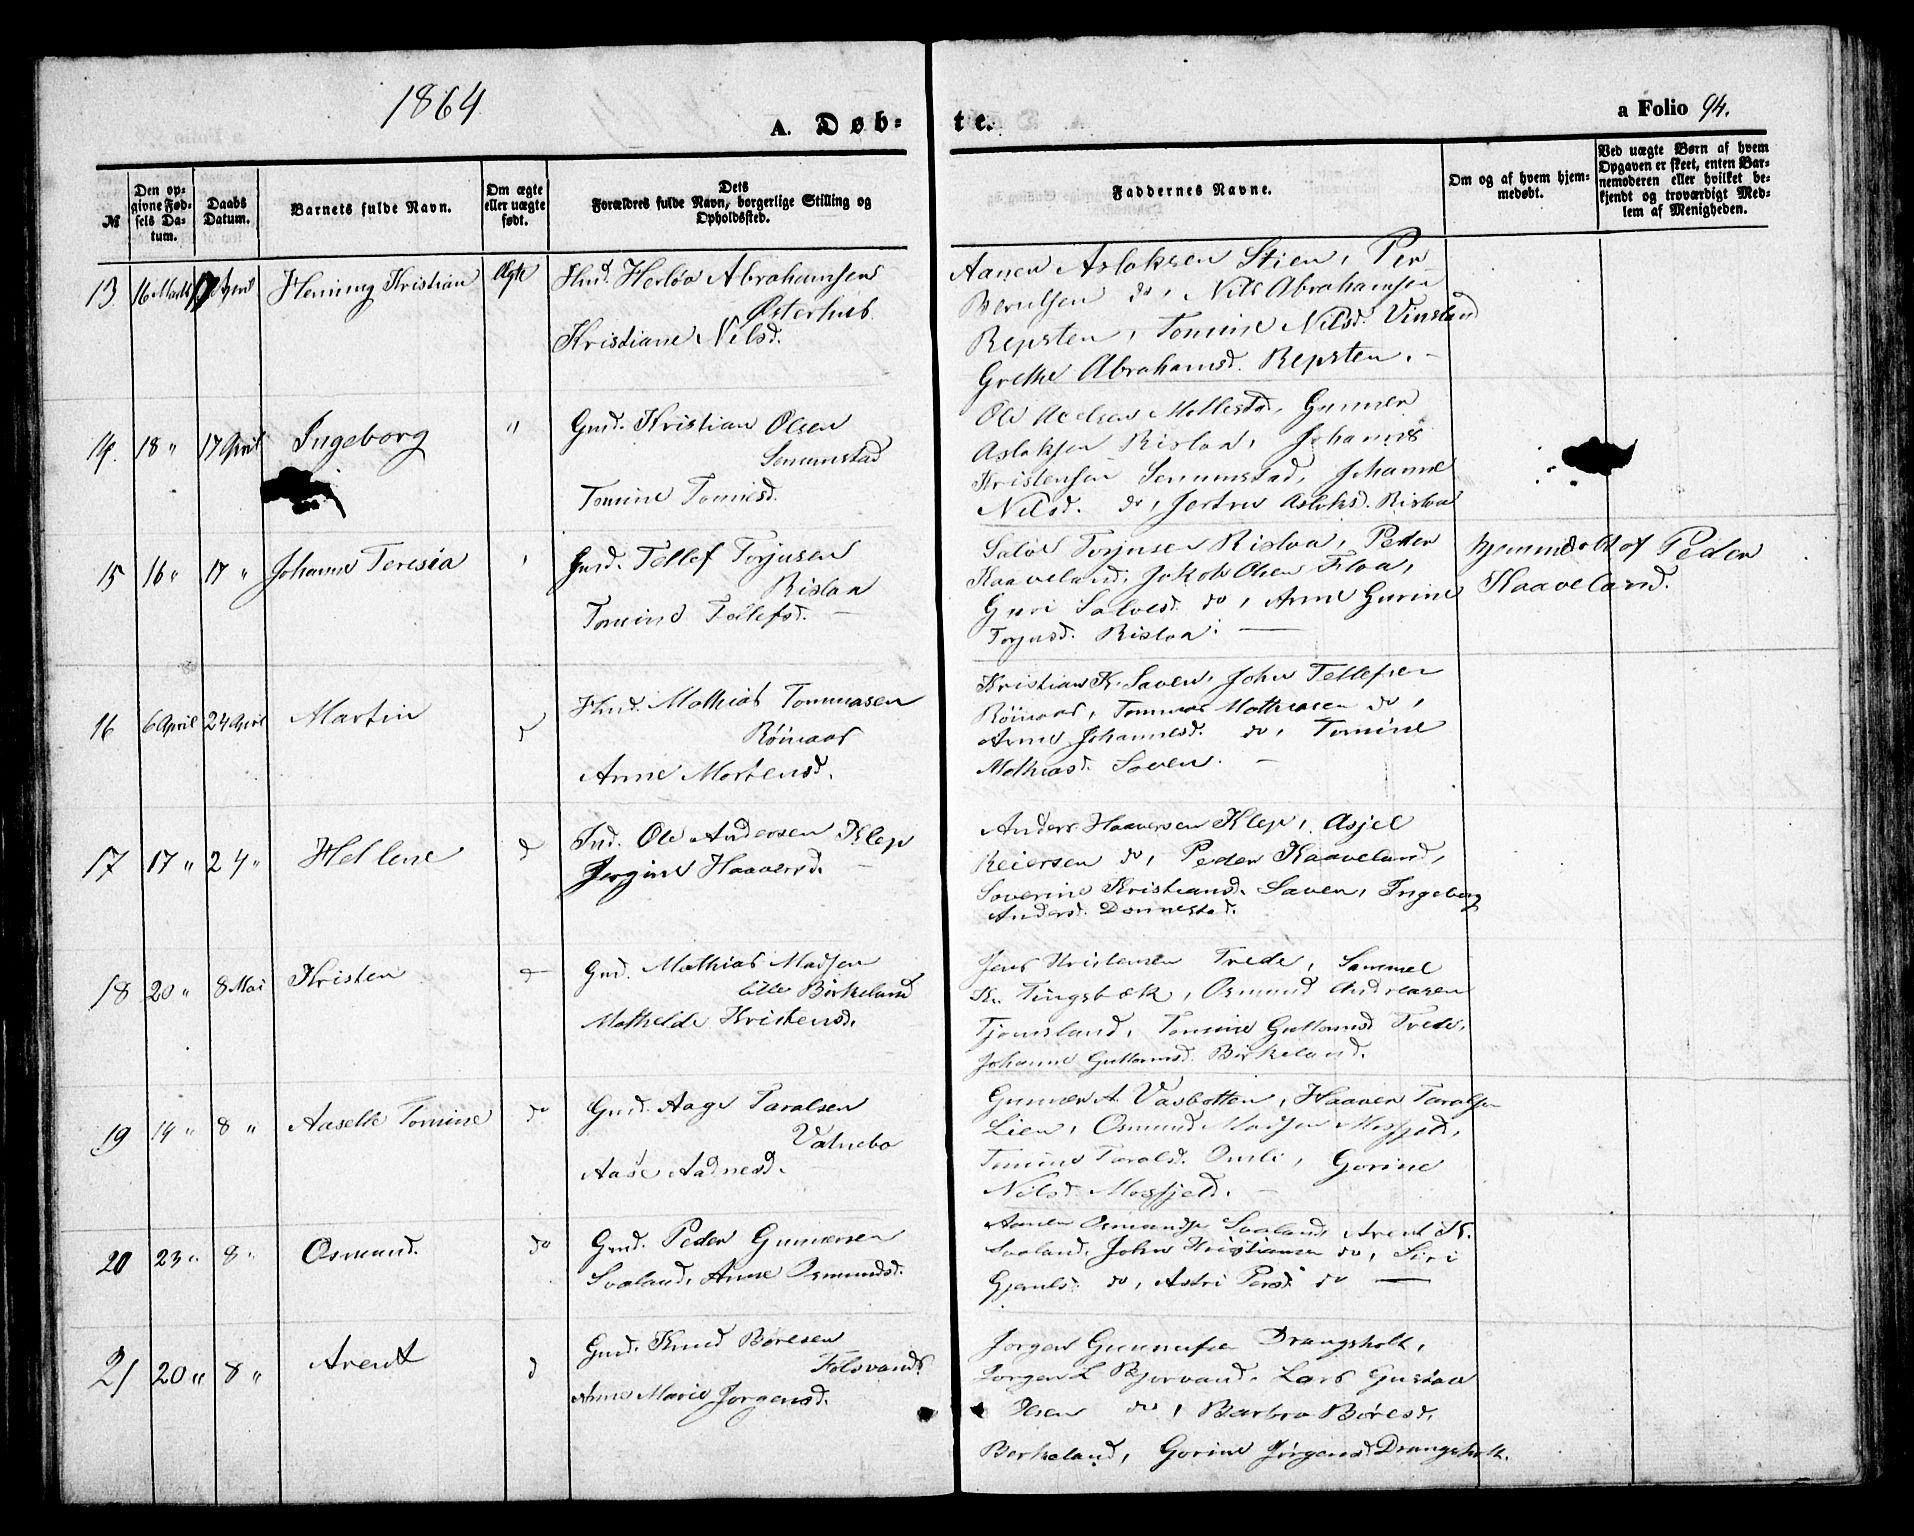 1864
A. Døb-
te.
a Folio 94.
№
Den op-
givne Fød-
sels Da-
tum.
Daabs
Datum.
Barnets fulde Navn.
Om ægte
eller uægte
født.
Dets
Forældres fulde Navn, borgerlige Stilling og
Opholdssted.
Faddernes Navne.
Om og af hvem hjem-
medøbt.
Ved uægte Børn af hvem
Opgaven er skeet, enten Bar-
nemoderen eller hvilket be-
kjendt og troværdigt Med-
lem af Menigheden.
13 16 Marts April Henning Kristian Ægte
Abrahamsen
Østerhus
Kristiane Nilsd.
Aanen Aslaksen Stien, Per
Berulsen do, Nils Abrahamsen
Repsten, Tomine Nilsd. Vinsland
Grethe Abrahamsd. Repsten. —
14. 18 " 17 April Ingeborg "
Gmd. Kristian Olsen
Senumstad
Tomine Tomisd.
Ole Mollestad, Gunner
Aslaksen Rislaa, Johannes
Kristensen Senumstad, Johanne
Nilsd. do, Aslaksd. Rislaa
15 16 " 17 " Johanne Teresia "
Gmd. Tellef Torjusen
Rislaa
Tomine Tellefsd. —
Torjusen Rislaa, Peder
Kaaveland, Jakob Olsen Flaa,
Guri Salvesd. do, Anne Gurine
Torjusd. Rislaa. —
hjemmedøbt af Peder
Kaaveland.
16 6 April 24 April Martin d
Mathias Tommasen
Røinaas
Anne Mortensd.
Kristian K. Saven, John Tellefsen
Røinaas, Tommas Mathiasen do,
Anne Johannesd. do, Tomine
Mathiasd. Saven. —
17 17 " 24 " Hellene d
Ind. Ole Andersen Klep
Jorgine Haaversd. —
Anders Haaversen Klep, Asjel
Reiersen do, Peder Kaaveland,
Soverine Kristiansd. Saven, Ingeborg
Andersd. Donnestad.
18 20 " 8 Mai Kristen d
Gmd. Mathias Madsen
lille Birkeland
Mathelde Kristensd.
Jens Kristensen Trede, Sammel
K. Tingsbæk, Osmund Andreasen
Tjomsland, Tomine Guttormsd Trede,
Johanne Guttormsd. Birkeland.
19 14 " 8 " Aaselte Tomine do
Gmd. Aage Taralsen
Vatnebo
Aase Aadnesd.
Gunner A. Vasbotten, Haaver Taralsen
Lien, Osmund Madsen Mosfjeld,
Tomine Taralsd. Omli, Gorine
Nilsd. Mosfjeld. —
20 23 " 8 " Osmund. do
Gmd. Peder Gunnersen
Svaland, Anne Osmundsd.
Aanen Osmundsen Svaland, Arent K.
Svaland, John Kristiansen do, Siri
Gjerulsd. do, Astri Persd. do —
21 20 " 8 " Arent d
Gmd. Knud Børesen
Folsvand.
Anne Marie Jorgensd.
Jorgen Gunnufsen Drangsholt,
Jorgen L Bjorvand, Lars Gustav
Olsen do, Barbro Børesd.
Berkeland, Gorine Jørgensd Drangsholt.